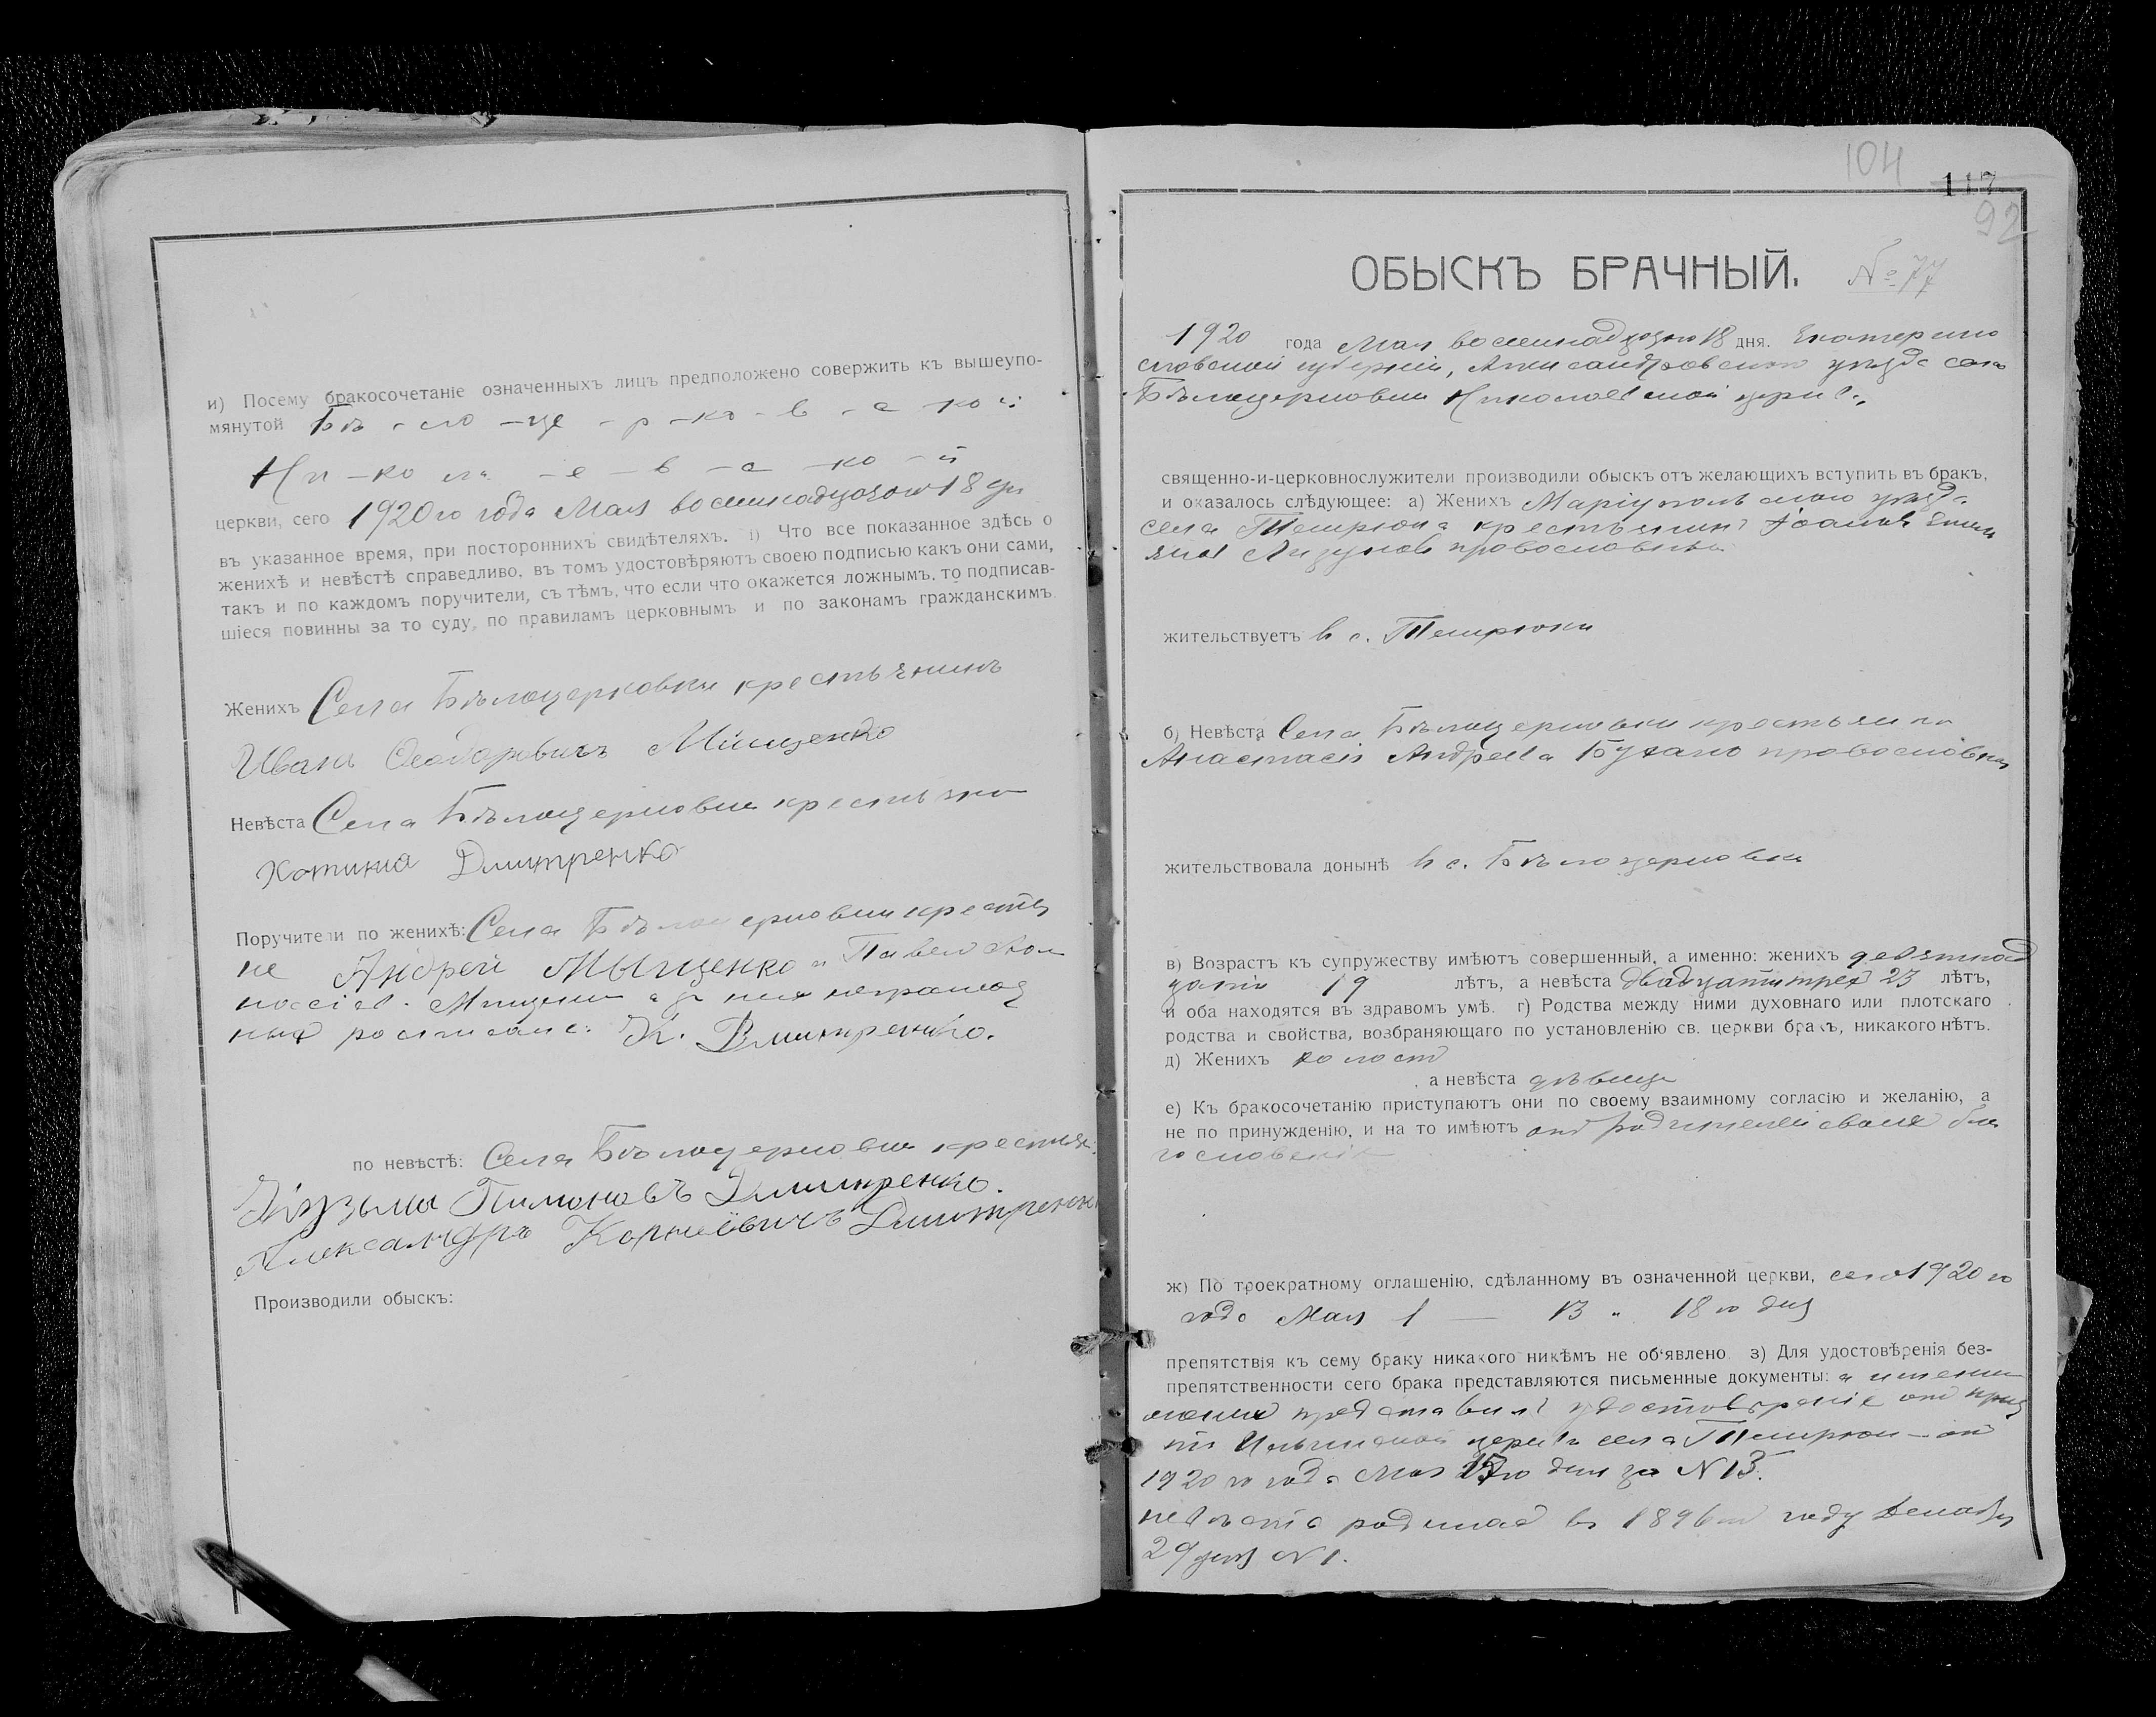 и) Посему бракосочетаніе означенныхъ лицъ предположено совержить къ вышеупо-
мянутой Бѣ - ло - це - р - ко - в - с - ко й
Ни - ко ла - е - в - с - ко - й
церкви, сего 1920 го года Мая восемнадцатаго 18 дня
въ указанное время, при постороннихъ свидѣтеляхъ. і) Что все показанное здѣсь о
женихѣ и невѣстѣ справедливо, въ томъ удостовѣряютъ своею подписью какъ они сами,
такъ и по каждомъ поручители, съ тѣмъ, что если что окажется ложнымъ, то подписав-
шіеся повинны за то суду, по правиламъ церковнымъ и по законамъ гражданскимъ.
Женихъ Села Бѣлоцерковки крестьянинъ
Иванъ Феодоровичъ Мищенко
Невѣста Села Бѣлоцерковки крестьянка
Хотина Дмитренко
Поручители по женихѣ: Села Бѣлоцерковки крестья
не Андрей Мыщенко и Павел
Мищенко а за них неграмот
ных росписался К. Дмитренко.
по невѣстѣ: Села Бѣлоцерковки крестьяне
Кузьма Пимоновъ Дмитренко.
Александръ Корнеевичъ Дмитренко
Производили обыскъ:
104
117
92
ОБЫСКЪ БРАЧНЫЙ. № 77
1920 года Мая восемнадцатаго 18 дня. Екатерино
славской губерніи, Александровскаго уѣзда села
Бѣлоцерковки Николаевской церкви
священно-и-церковнослужители производили обыскъ отъ желающихъ вступить въ бракъ,
и оказалось слѣдующее: а) Женихъ Маріупольскаго уѣзда
села Темрюка крестьянинъ Іоаннъ Емель
янов Лизунов православный
жительствуетъ в с. Темрюки
б) Невѣста Села Бѣлоцерковки крестьянка
Анастасія Андреева православная
жительствовала донынѣ в с. Бѣлоцерковка
в) Возрастъ къ супружеству имѣютъ совершенный, а именно: женихъ девятнад
цати 19 лѣтъ, а невѣста двадцати трех 23 лѣтъ,
и оба находятся въ здравомъ умѣ. г) Родства между ними духовнаго или плотскаго
родства и свойства, возбраняющаго по установленію св. церкви бракъ, никакого нѣтъ.
д) Женихъ холост
а невѣста дѣвица
е) Къ бракосочетанію приступаютъ они по своему взаимному согласію и желанію, а
не по принужденію, и на то имѣютъ от родителей своих бла
гословеніе
ж) По троекратному оглашенію, сдѣланному въ означенной церкви, сего 1920 го
года Мая 1 — 13 и 18 го дня
препятствія къ сему браку никакого никѣмъ не об'явлено з) Для удостовѣренія без-
препятственности сего брака представляются письменные документы: а именно
жених представилъ удостовѣреніе от прич
та Ильинской церкви села Темрюка от
1920 го года Мая го дня за N 13.
невѣста родилась в 1896 м году Декабря
29 дня N 1.